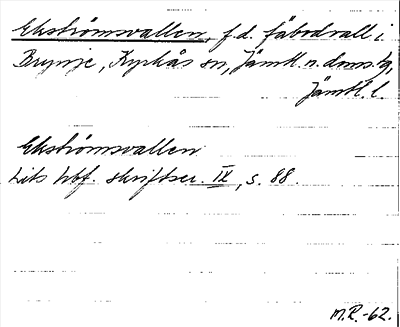 Ekströmsvallen, f.d. fäbodvall i
Brynje, Kyrkås sn, Jämtl. n. doms.tg,
Jämtl. l.
Ekströmsvallen
Lits hbf. skriftser. IX, s. 88.
M.R.-62.